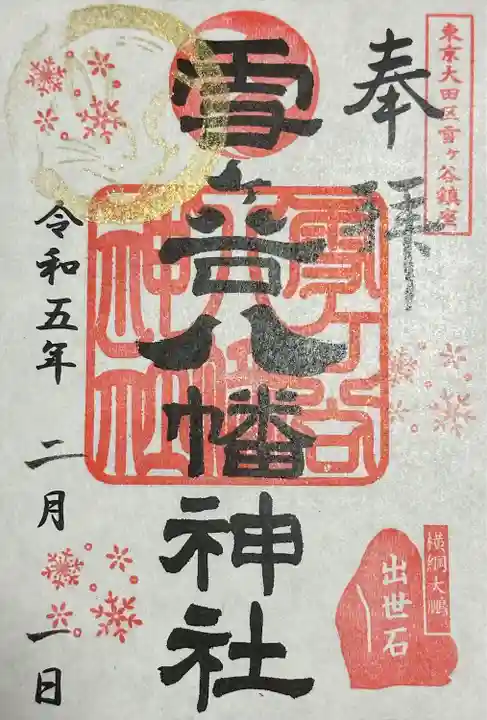 東京大田区雪ヶ谷鎮座
奉拝
雪ヶ谷八幡神社
雪ヶ谷
八幡
神社
令和五年 二月 一日
横綱大鵬
出世石